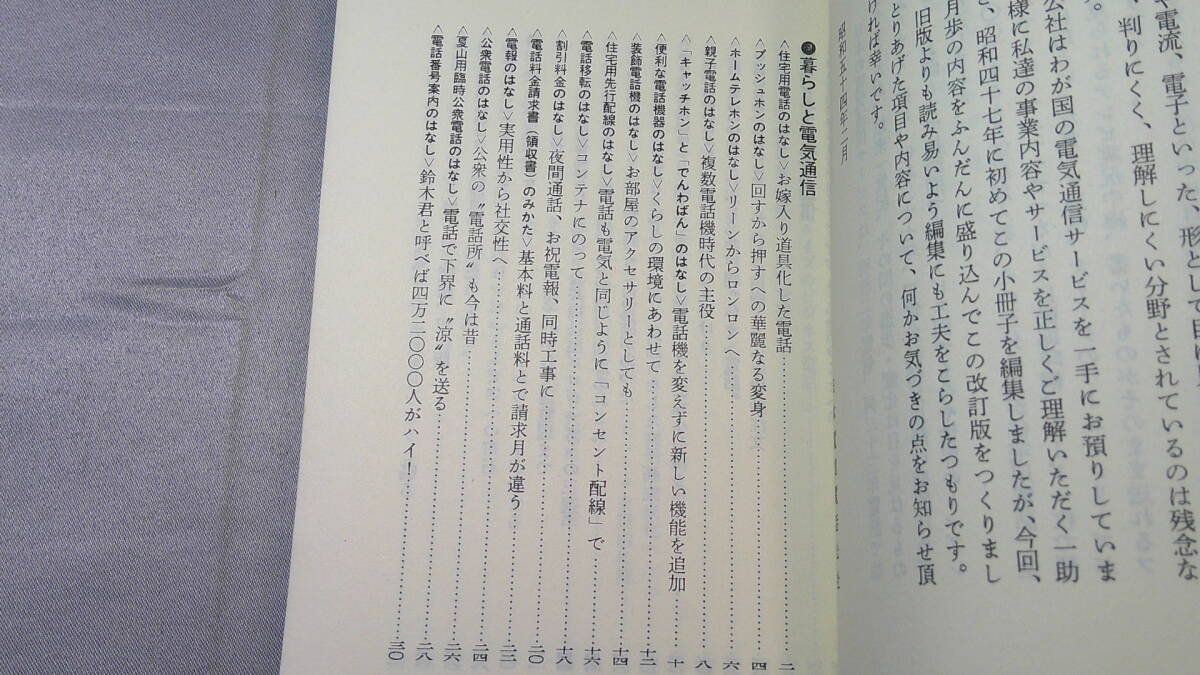 や電流、電子といった、形として
、判りにくく、理解しにくい分野とされているのは残念な
。
公社はわが国の電気通信サービスを一手にお預りしていま
様に私達の事業内容やサービスを正しくご理解いただく一助
、昭和四十七年に初めてこの小冊子を編集しましたが、今回、
月歩の内容をふんだんに盛り込んでこの改訂版をつくりまし
旧版よりも読み易いよう編集にも工夫をこらしたつもりです。
とりあげた項目や内容について、何かお気づきの点をお知らせ頂
ければ幸いです。
昭和五十四年二月
暮らしと電気通信
〈住宅用電話のはなし〉お嫁入り道具化した電話……二
〈プッシュホンのはなし〉回すから押すへの華麗なる変身……四
〈ホームテレホンのはなし〉リーンからロンロンへ……六
〈親子電話のはなし〉複数電話機時代の主役……八
〈「キャッチホン」と「でんわばん」のはなし〉電話機を変えずに新しい機能を追加……十
〈便利な電話機器のはなし〉くらしの環境にあわせて……十二
〈装飾電話機のはなし〉お部屋のアクセサリーとしても……十四
〈住宅用先行配線のはなし〉電話も電気と同じように「コンセント配線」で……十六
〈電話移転のはなし〉コンテナにのって……十八
〈割引料金のはなし〉夜間通話、お祝電報、同時工事に……二〇
〈電話料金請求書(領収書)のみかた〉基本料と通話料とで請求月が違う……二二
〈電報のはなし〉実用性から社交性へ……二四
〈公衆電話のはなし〉公衆の〝電話所〟も今は昔……二六
〈夏山用臨時公衆電話のはなし〉電話で下界に〝涼〟を送る……二八
〈電話番号案内のはなし〉鈴木君と呼べば四万二〇〇〇人がハイ！……三〇